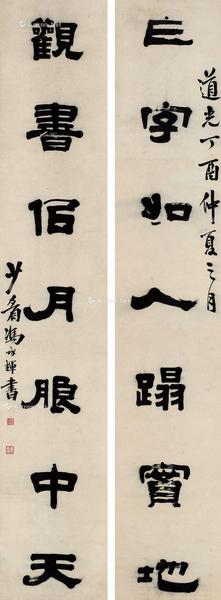 道光丁酉仲夏之月
字如人蹋實地
觀書佀月朖中天
少眉馮承輝書